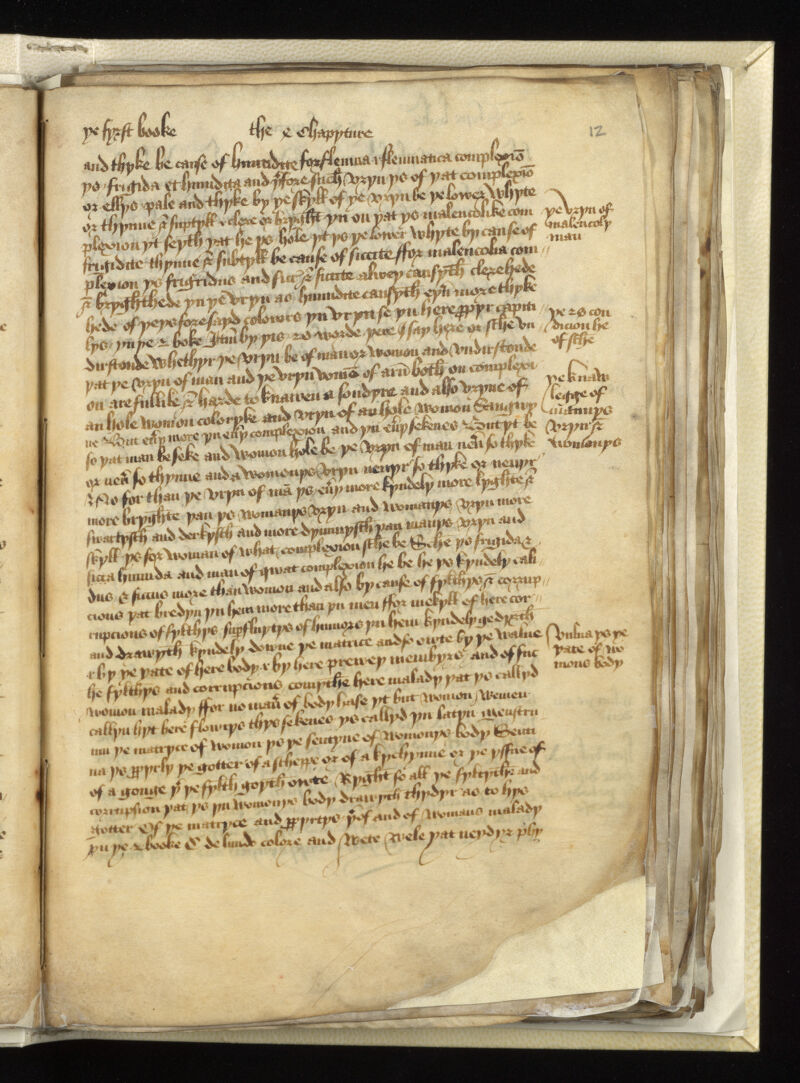 ye fyrst booke the x Chapyture
12
and thyke be cause of humidite for flewma & flewmatica complexiō
ys frigida et humida and yfore such vryn ys of yat complexiō
or ellys pale and thyke by ye skyll of ye vryn be ye lower whyte
or thynne & suptyll & clere or bryght yn on yat ys malencolike com
plexion yt seyth yat he ys hole yt ys ye lower whyte by cause of
frigidite thynne & subtyll be cause of siccite ffor malencolia com
plexion ys frigidus and sicc & siccite alwey causyth clerehede
& bryghthede yn ye vryn as humidite causyth eū more thyke
hede of yeys foresayd colowrs yn vryn se yn here ppyr capitu
lys yn ye boke Itm by yis worde yere I say here or sche vn
dirstonde whethyr ye vryn be of man or womon and vndirstonde
yat ye vryn of man and ye vryn womō of arn both on complexi
on are full like & harde to knawen a sondyre and also vryne of
an hole womon coloryke and vryn of an hole womon Sangwy
ne & But eūy more yn eūy complexion and yn eūy sekenes & But yt be
so yat man be seke and womon hole be ye vryn of man neū so thyke
or neū so thynne and a womonys vryn neuyr so thyke or neuyr
& No for than ye vryn of mā ys eūy more kyndely more lyghte &
more bryghte yan ys womonys vryn and womonys vryn more
swartysch and derkysch and more dymmysch yan manys vryn and
skyll ys for woman of what complexion sche be Sche ys frigida &
sicca humida and man of qwat complexion he be he ys kyndely cali
dus & siccus more than womon and also by cause of fylthys & corrup
cious yat bredyn yn hem more than yn men ffor mekyll of here cor
rupcious of fylthys supfluytes of humors yn hem kyndely gedyrth
and drawyth kyndely downe ye matrice and so owte by ye walue
& by ye yate of here body & by here prewey membyrs and of suc
he fylthys and corrupcions comythe here malady yat ys callyd
womon malady ffor no man of body hase yt but womon Wemen
callyn hyt here flowrys thys sekenes ys callyd yn latyn menstru
um ye matryce of womon ys ye sentyne of womonys body Senti
na ys ppyrly ye gotter of a scheppe or of a kychynne or ye yssue of
of a gonge yͤ ye fylth goyth owte Ryght so all ye fylthythe and
corrupsion yat ys yn womonys body drawyth thydyr as to hys
gotter Of ye matryce and ppyrtys yͤof and of womans malady
yn ye booke de liuido colore and Wete wele yat neydyr
ye vryn of
malencoly
man
ye con
dicion he
of sche
ye knaw
legge of
mannys
vryn &
womonys
vulua ys ye
yate of wo
mons body